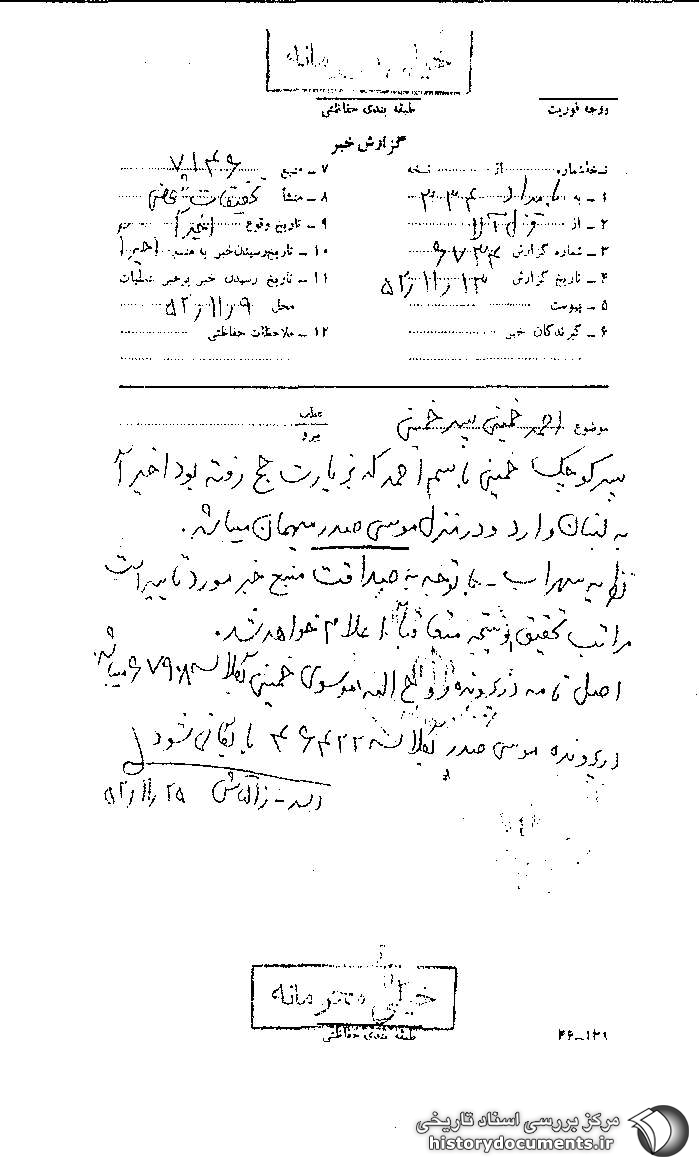 خیلی محرمانه
طبقه بندی حفاظتی
درجه فوریت
گزارش خبر
نسخه شماره از نسخه
۱ - به بامداد ۳۳۴
۲ - از
۳ - شماره گزارش ۶۷۳۴
۴ - تاریخ گزارش ۵۲/۱۱/۱۳
۵ - پیوست
۶ - گیرندگان خبر
۷ - منبع ۷۱۴۶
۸ - منشأ تحقیقات شخصی
۹ - تاریخ وقوع اخیراً
۱۰ - تاریخ رسیدن خبر به منبع اخیراً
۱۱ - تاریخ رسیدن خبر به رهبر عملیات
محل ۵۲/۱۱/۹
۱۲ - ملاحظات حفاظتی
موضوع احمد خمینی پسر خمینی
عطف
پیرو
پسر کوچک خمینی باسم احمد که بزیارت حج رفته بود اخیراً
به لبنان وارد و در منزل موسی صدر میهمان میباشد.
نظریه سهراب - با توجه به صداقت منبع خبر مورد تایید است
مراتب تحقیق و نتیجه متعاقباً اعلام خواهد شد.
اصل نامه در پرونده روح اله موسوی خمینی بکلاسه ۶۷۹۰۸ میباشد
در پرونده موسی صدر بکلاسه ۴۶۴۲۲ بایگانی شود
۵۲/۱۱/۲۵
خیلی محرمانه
طبقه بندی حفاظتی
۴۶-۱۲۹
مرکز بررسی اسناد تاریخی
historydocuments.ir